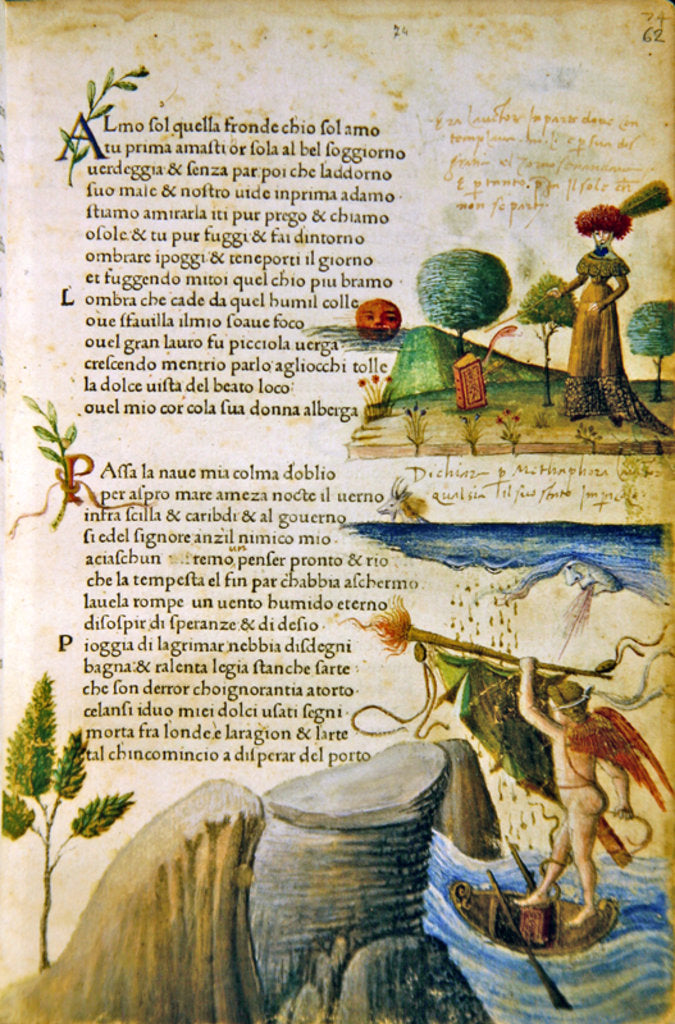 24
74
62
ALmo sol quella fronde chio sol amo
tu prima amasti or sola al bel soggiorno
uerdeggia & senza par poi che laddorno
suo male & nostro uide inprima adamo
stiamo amirarla iti pur prego & chiamo
osole & tu pur fuggi & fai dintorno
ombrare ipoggi & teneporti il giorno
et fuggendo mitoi quel chio piu bramo
L ombra che cade da quel humil colle
oue sfauilla ilmio soaue foco
ouel gran lauro fu picciola uerga
crescendo mentrio parlo agliocchi tolle
la dolce uista del beato loco
ouel mio cor cola sua donna alberga
PAssa la naue mia colma doblio
per aspro mare ameza nocte il uerno
infra scilla & caribdi & al gouerno
si edel signore anzil nimico mio
aciaschun remo un penser pronto & rio
che la tempesta el fin par chabbia aschermo
lauela rompe un uento humido eterno
disospir di speranze & di desio
P ioggia di lagrimar nebbia disdegni
bagna & ralenta legia stanche sarte
che son derror choignorantia atorto
celansi iduo miei dolci usati segni
morta fra londe e laragion & larte
tal chincomincio a disperar del porto